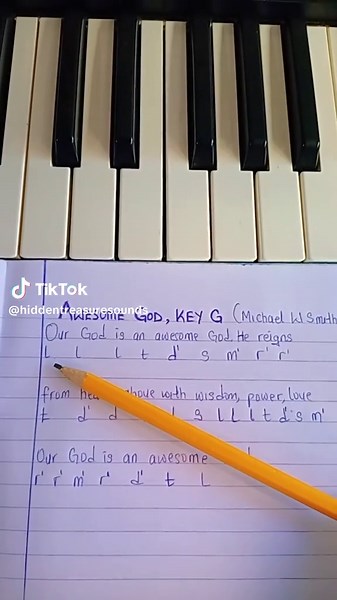 TikTok
@hiddentreasuresounds
AWESOME GOD, KEY G (Michael W Smith
Our God is an awesome God. He reigns
L L L t d' s m' r' r'
from above with wisdom, power, love
t d' d L s L L L t d' s m'
Our God is an awesome
r' r' m' r' d' t L